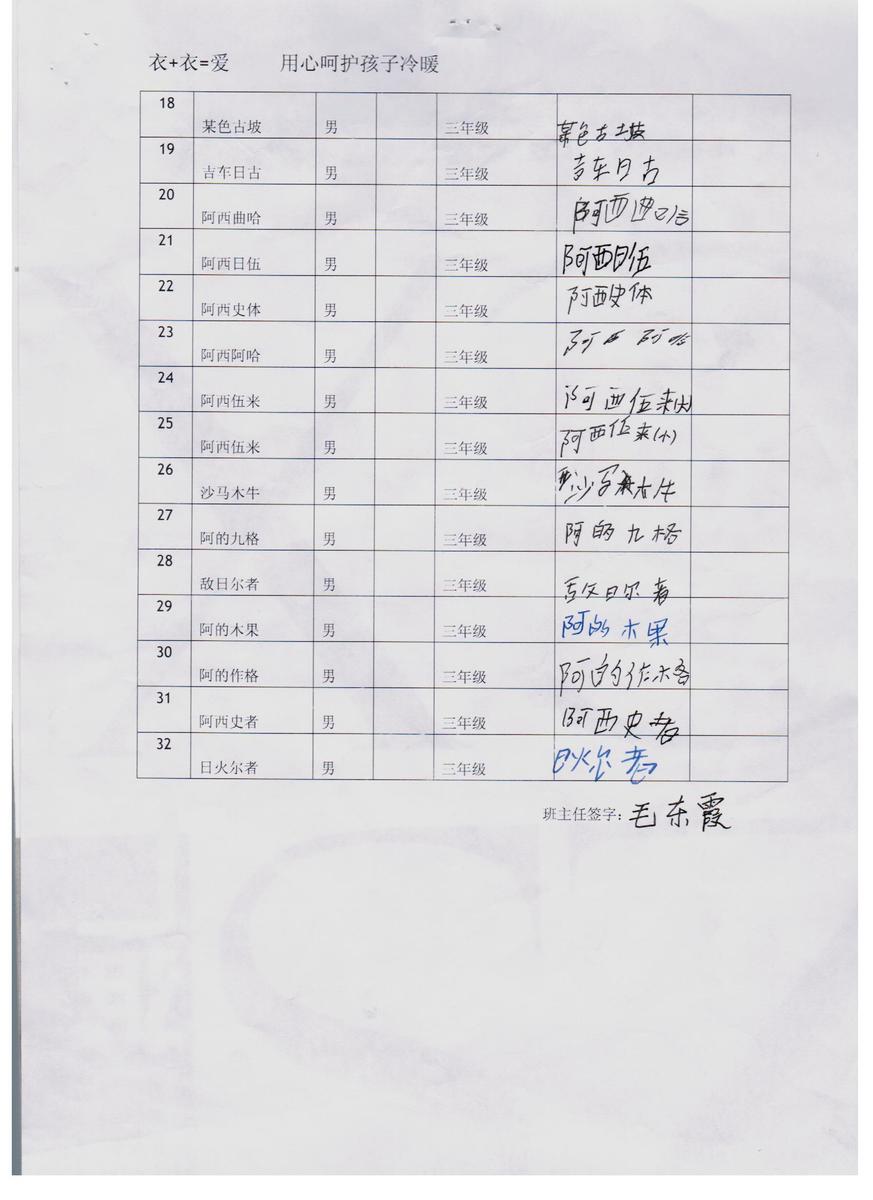 衣+衣=爱 用心呵护孩子冷暖
18 某色古坡 男 三年级 某色古坡
19 吉车日古 男 三年级 吉车日古
20 阿西曲哈 男 三年级 阿西曲哈
21 阿西日伍 男 三年级 阿西日伍
22 阿西史体 男 三年级 阿西史体
23 阿西阿哈 男 三年级 阿西阿哈
24 阿西伍来 男 三年级 阿西伍来(大)
25 阿西伍来 男 三年级 阿西伍来(小)
26 沙马木牛 男 三年级 沙马木牛
27 阿的九格 男 三年级 阿的九格
28 敌日尔者 男 三年级 敌日尔者
29 阿的木果 男 三年级 阿的木果
30 阿的作格 男 三年级 阿的作格
31 阿西史者 男 三年级 阿西史者
32 日火尔者 男 三年级 日火尔者
班主任签字：毛东霞